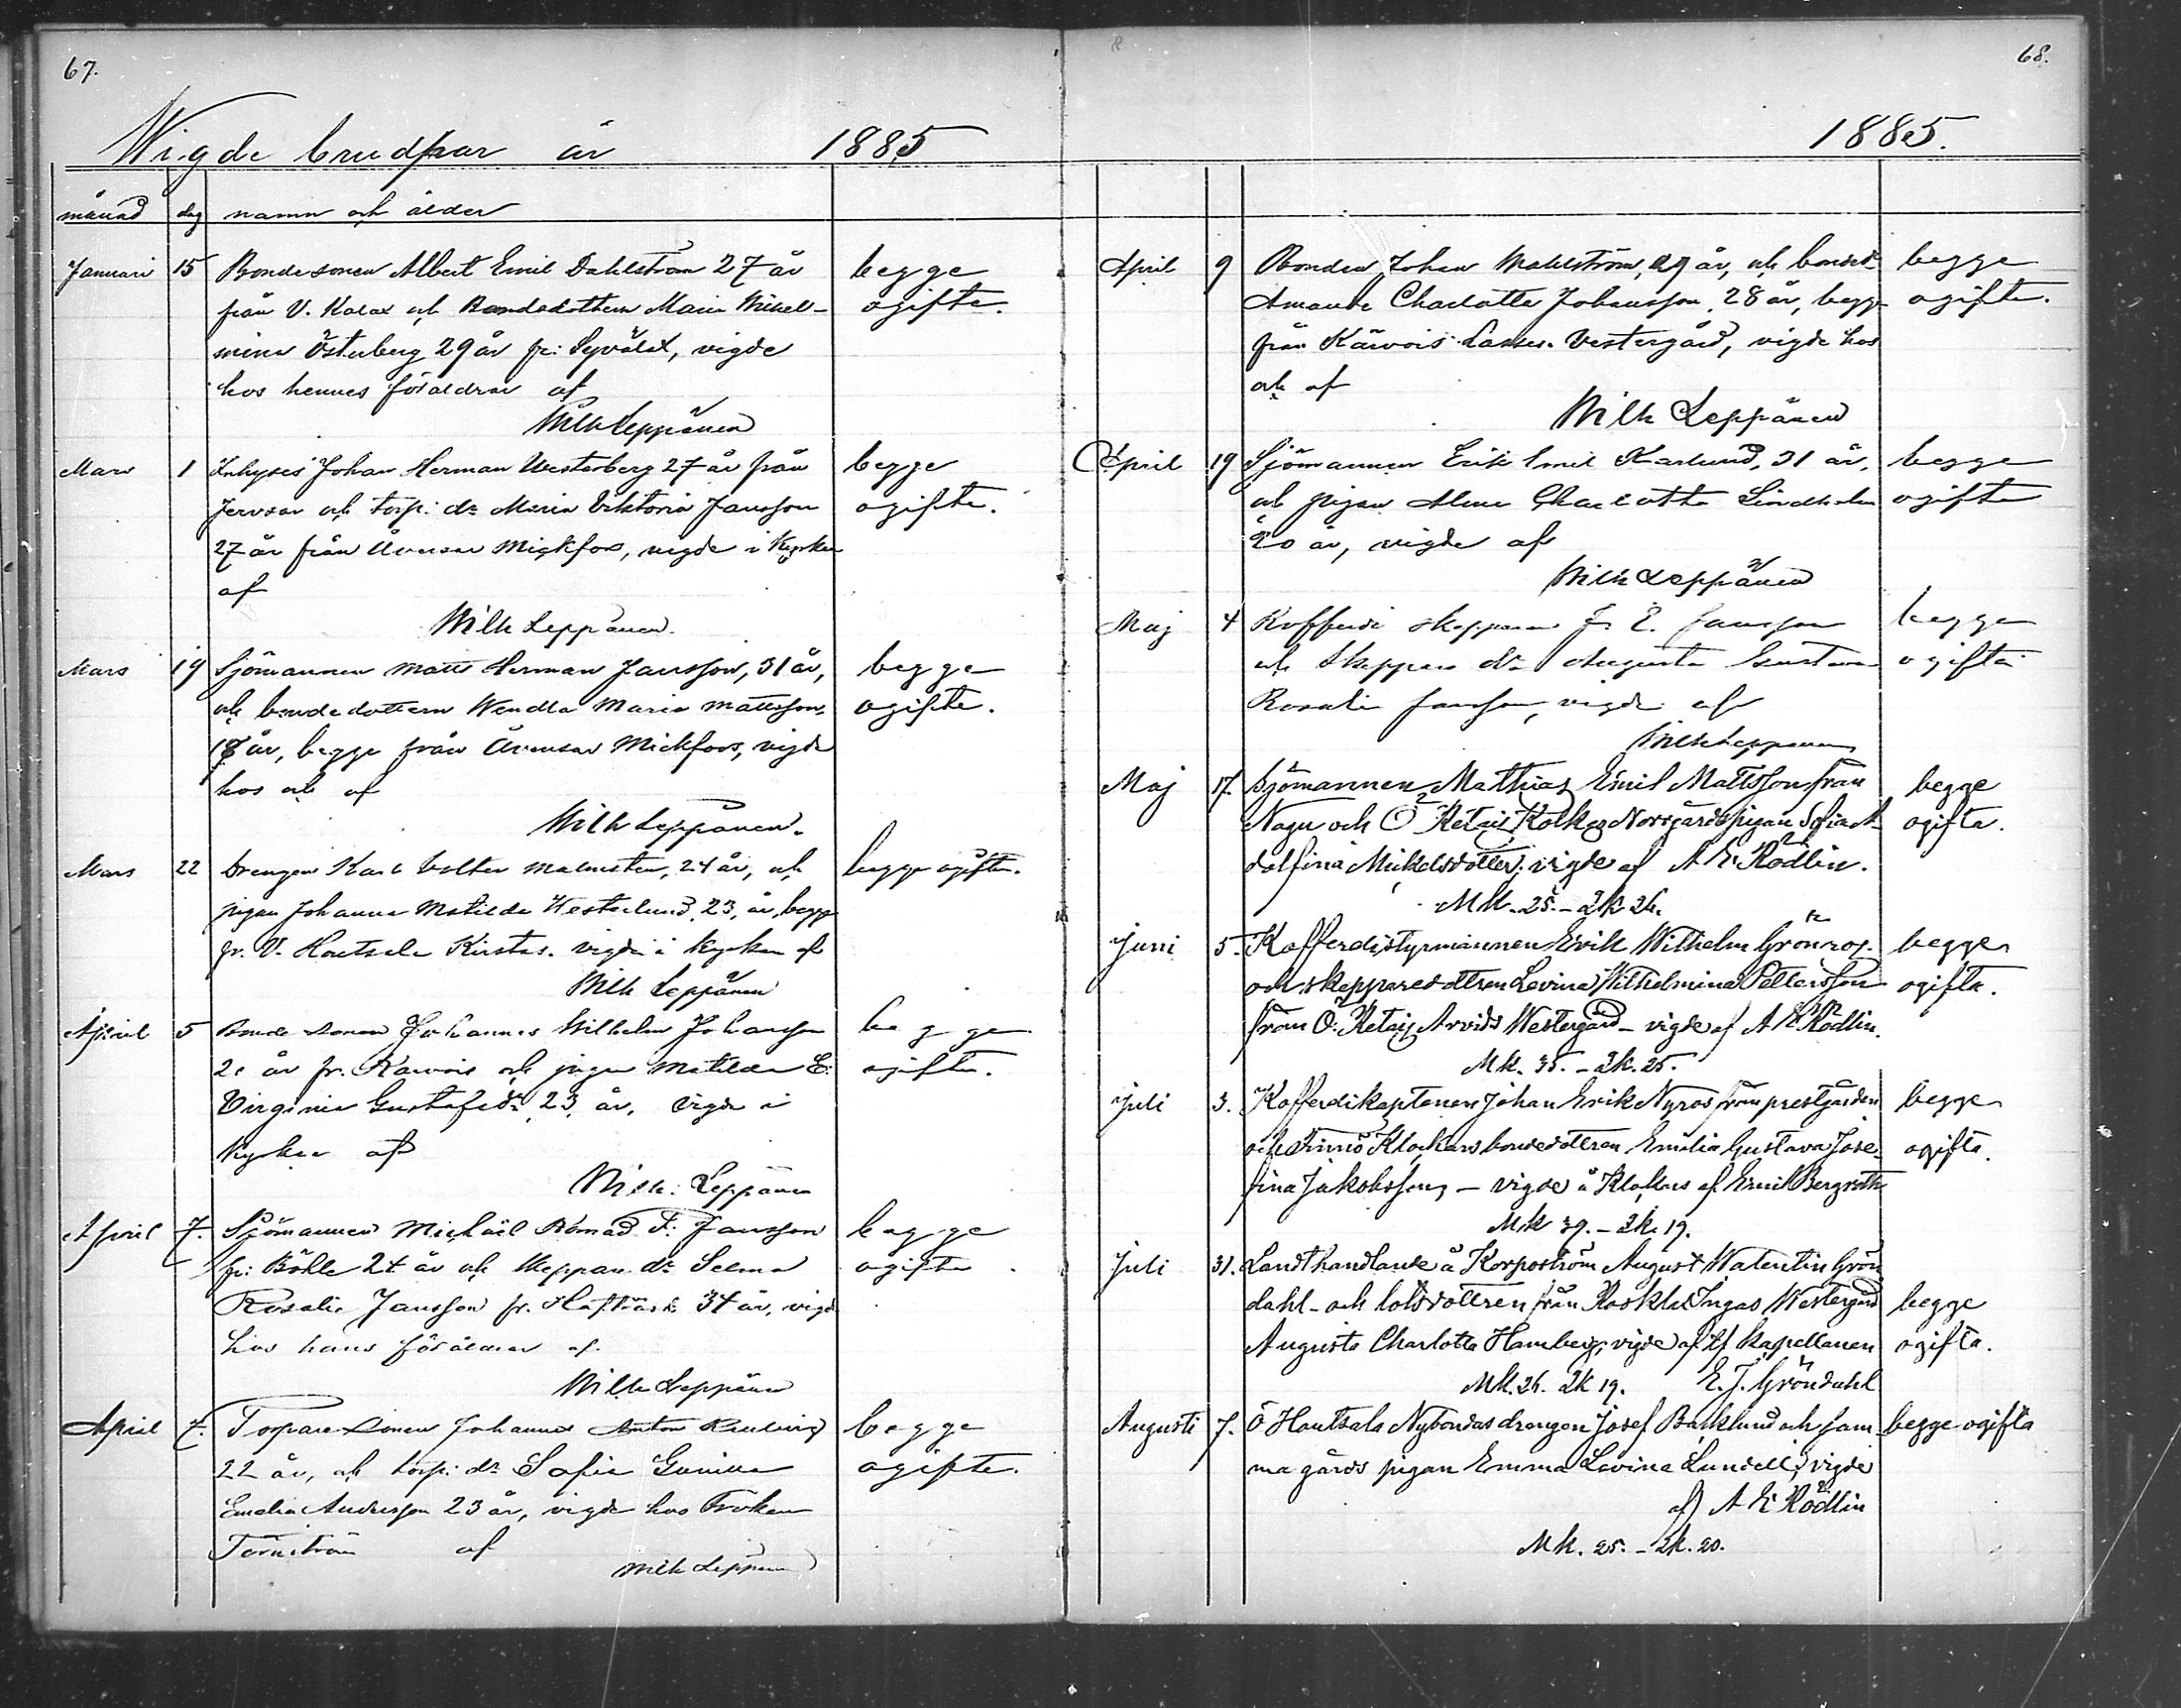 67.
Wigde brudpar år 1885
månad dag namn och ålder
Januari 15 Bondesonen Albert Emil Dahlström 27 år begge
från V. Kalax och Bondedottern Maria Wilhel- ogifte.
mina Österberg 29 år fr: Syvälax, vigde
hos hennes föräldrar af
Wilh Leppänen
Mars 1 Inhyses Johan Herman Westerberg 27 år från begge
Jervsor och torp: dr Maria Viktoria Jansson ogifte.
27 år från Åvensor Mickfors, vigde i Kyrkan
af
Wilh Leppänen.
Mars 19 Sjömannen Matts Herman Jansson, 31 år, begge
och bondedottern Wendla Maria Mattsson, ogifte.
18 år, begge från Åvensor Mickfors, vigde
hos och af
Wilh Leppänen.
Mars 22 Drengen Karl Volter Malmsten, 24 år, och begge ogifte.
pigan Johanna Matilda Westerlund, 23, år, begge
fr. V. Houtsala Kirstas. vigde i kyrkan af
Wilh Leppänen
April 5 Bonde sonen Johannes Wilhelm Johansson begge
år fr. Kärvois och pigan Matilda E: ogifte.
Virginia Gustafsdr, 23, år, vigde i
Kyrkan af
Wilh: Leppänen
April 7. Sjömannen Michäil F: Jansson begge
fr: Böhle 24 år och skeppare dr Selma ogifte.
Rosalie Jansson fr. 34 år, vigde
hos hans föräldrar af.
Wilh Leppänen
April 7. Torpare sonen Johannes Anton begge
22 år, och torp: dr Sofia Gunilla ogifte.
Emelia Andersson 23 år, vigde hos Fröken
Törnström af
Wilh Leppänen
68.
1885.
April 9 Bonden Johan Mahlström, 29 år, och bonded. begge
Amanda Charlotta Johansson, 28 år, begge ogifte.
från Kärvois Lasses. Vestergård, vigde hos
och af
Wilh Leppänen
April 19 Sjömannen Erik Emil Karlund, 31 år, begge
och pigan Alma Charlotta Lindholm ogifte
20 år, vigde af
Wilh Leppänen
Maj 4 Kofferdi skepparen J. E. Jansson begge
och skeppare dr Augusta Gustava ogifta
Rosalie Jansson, vigde af
Wilh Leppänen
Maj 17. Sjömannen Mathias Emil Mattsson från begge
Nagu och Ö Retais Kolkas Norrgårds pigan Sofia A- ogifta.
dolfina Mickelsdotter; vigde af A E Rödlin.
Mk. 25. – 2k 26.
Juni 5. Kofferdistyrmannen Erik Wilhelm Grönroos begge
och skepparedottren Lovina Wilhelmina Pettersson ogifta.
från Ö: Retais Arvids Westergård – vigde af A E Rödlin.
Mk. 35. – 2k. 25.
Juli 3. Kofferdikaptenen Johan Erik Nyros från prestgården begge
och Finnö Klockars bondedottren Emilia Gustava Jose- ogifta.
fina Jakobsson, – vigde å Klockars af Emil Bergroth
Mk 39. – 2k. 19.
Juli 31. Landthandlande å Korpoström August Walentin Grön
dahl – och lotsdottren från Rosklax Ingas Westergård begge
Augusta Charlotta Hamberg, vigde af tf kapellanen ogifta.
Mk. 26. 2k 19. E. J. Gröndahl
Augusti 7. Ö Houtsala Nybondas drengen Josef Backlund och sam- begge ogifta
ma gårds pigan Emma Lovina Lundell; vigde
af A E Rödlin
Mk. 25. – 2k. 20.